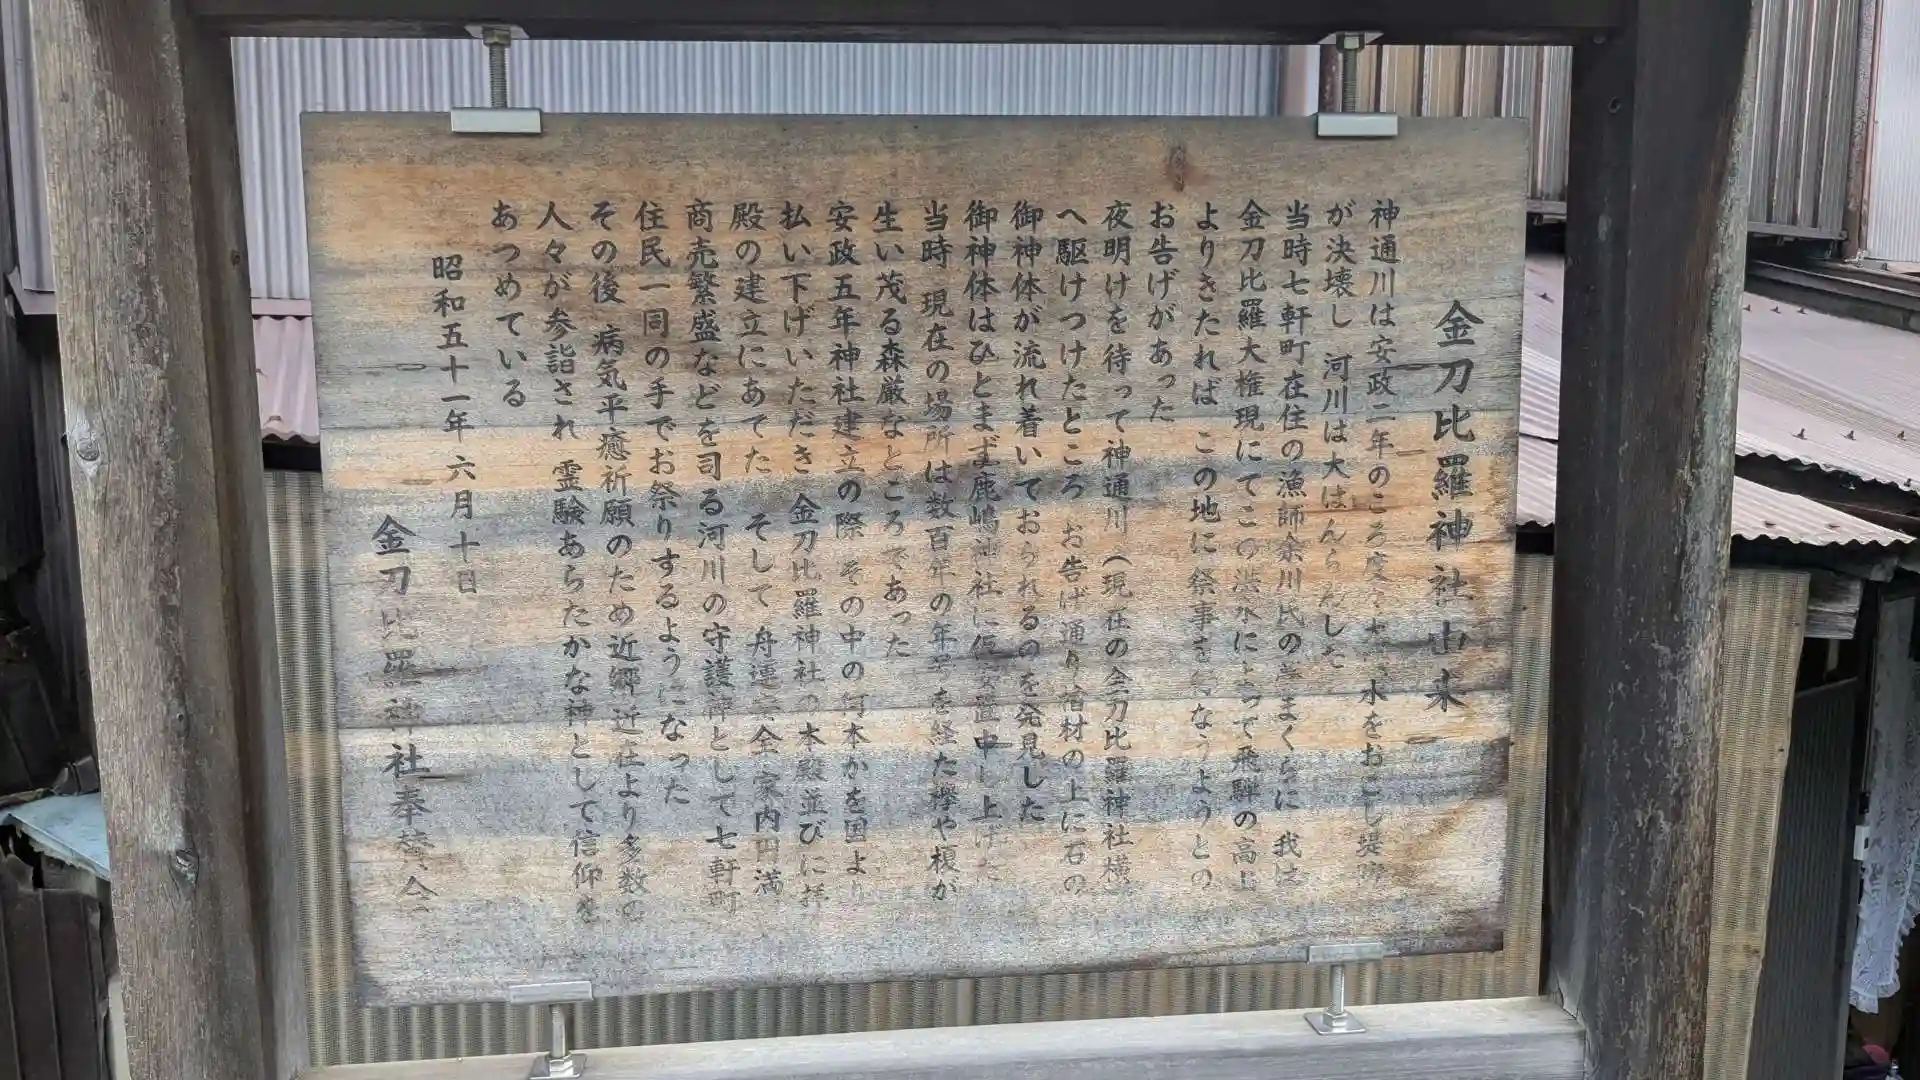 金刀比羅神社由来
神通川は安政二年のころ度々 水をおこし堤防
が決壊し 河川は大はんらんした
当時七軒町在住の漁師余川氏の まくらに 我は
金刀比羅大権現にてこの洪水に って飛騨の高山
よりきたれば この地に祭事を なうようとの
お告げがあった
夜明けを待って神通川（現在の金刀比羅神社横
へ駆けつけたところ お告げ通り 材の上に石の
御神体が流れ着いておられるのを発見した
御神体はひとまず鹿嶋神社に仮安置申し上げた
当時 現在の場所は数百年の年 を経た欅や榎が
生い茂る森厳なところであった
安政五年神社建立の際 その中の何本かを国より
払い下げいただき 金刀比羅神社の本殿並びに拝
殿の建立にあてた そして 舟運 全 家内円満
商売繁盛などを司る河川の守護神として七軒町
住民一同の手でお祭りするようになった
その後 病気平癒祈願のため近郷近在より多数の
人々が参詣され 霊験あらたかな神として信仰を
あつめている
昭和五十一年 六月十日
金刀比羅神社奉賛会